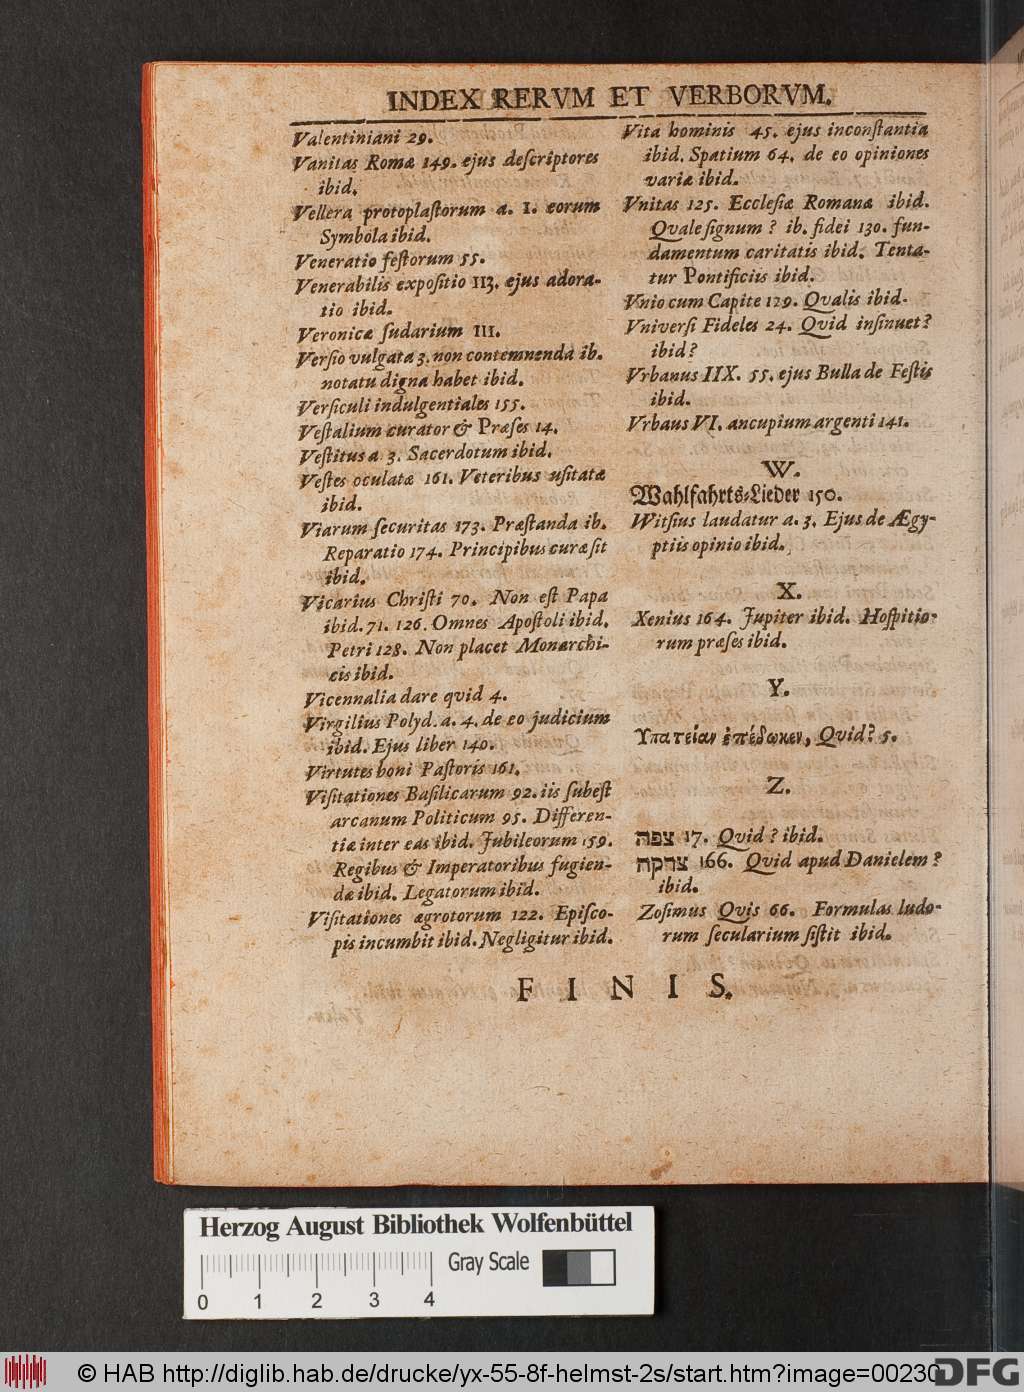 INDEX RERVM ET VERBORVM.
Valentiniani 29.
Vanitas Romæ 149. ejus deſcriptores
ibid.
Vellera protoplaſtorum a. 1. eorum
Symbola ibid.
Veneratio feſtorum 55.
Venerabilis expoſitio 113. ejus adora-
tio ibid.
Veronicæ ſudarium 111.
Verſio vulgata 3. non contemnenda ib.
notatu digna habet ibid.
Verſiculi indulgentiales 155.
Veſtalium curator & Præſes 14.
Veſtitus a 3. Sacerdotum ibid.
Veſtes oculatæ 161. Veteribus uſitatæ
ibid.
Viarum ſecuritas 173. Præſtanda ib.
Reparatio 174. Principibus curæ ſit
ibid.
Vicarius Chriſti 70. Non eſt Papa
ibid. 71. 126. Omnes Apoſtoli ibid.
Petri 128. Non placet Monarchi-
cis ibid.
Vicennalia dare qvid 4.
Virgilius Polyd. a. 4. de eo judicium
ibid. Ejus liber 140.
Virtutes boni Paſtoris 161.
Viſitationes Baſilicarum 92. iis ſubeſt
arcanum Politicum 95. Differen-
tiæ inter eas ibid. Jubileorum 159.
Regibus & Imperatoribus fugien-
dæ ibid. Legatorum ibid.
Viſitationes ægrotorum 122. Epiſco-
pis incumbit ibid. Negligitur ibid.
Vita hominis 45. ejus inconſtantia
ibid. Spatium 64. de eo opiniones
variæ ibid.
Vnitas 125. Eccleſiæ Romanæ ibid.
Qvale ſignum? ib. fidei 130. fun-
damentum caritatis ibid. Tenta-
tur Pontificiis ibid.
Vnio cum Capite 129. Qvalis ibid.
Vniverſi Fideles 24. Qvid inſinuet?
ibid?
Vrbanus IIX. 55. ejus Bulla de Feſtis
ibid.
Vrbaus VI. aucupium argenti 141.
W.
Wahlfahrts-Lieder 150.
Witſius laudatur a. 3. Ejus de Ægy-
ptiis opinio ibid.
X.
Xenius 164. Jupiter ibid. Hoſpitio-
rum præſes ibid.
Y.
Υπατείαν ἐπέδωκεν, Qvid? 5.
Z.
צפה 17. Qvid? ibid.
צדקה 166. Qvid apud Danielem?
ibid.
Zoſimus Qvis 66. Formulas ludo-
rum ſecularium ſiſtit ibid.
FINIS.
Herzog August Bibliothek Wolfenbüttel
Gray Scale
0 1 2 3 4
© HAB http://diglib.hab.de/drucke/yx-55-8f-helmst-2s/start.htm?image=00230
DFG